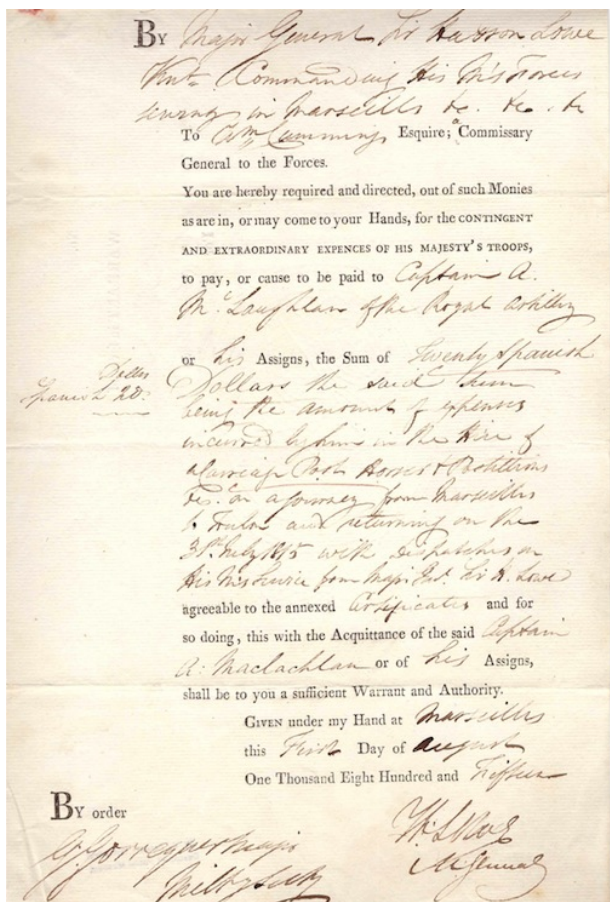 By Major General Sir Hudson Lowe
Knt. Commanding His M's Forces
serving in Marseilles &c. &c. &c
To Wm. Cumming Esquire; a Commissary
General to the Forces.
You are hereby required and directed, out of such Monies
as are in, or may come to your Hands, for the CONTINGENT
AND EXTRAORDINARY EXPENCES OF HIS MAJESTY'S TROOPS,
to pay, or cause to be paid to Captain A.
McLaughlan of the Royal Artillery
or his Assigns, the Sum of Twenty Spanish
Dollers
Spanish 20.
Dollars the said Sum
being the amount of expenses
incurred by him in the Hire of
a Carriage Post Horses & Postillions
&c. on a journey from Marseilles
to Toulon and returning on the
31st. July 1815 with dispatches on
His M's Service from Majr. Genl. Sir H. Lowe
agreeable to the annexed Certificates and for
so doing, this with the Acquittance of the said Captain
A. Maclachlan or of his Assigns,
shall be to you a sufficient Warrant and Authority.
GIVEN under my Hand at Marseilles
this First Day of August
One Thousand Eight Hundred and Fifteen
BY order
H. Lowe
M. General
G. Gorrequer Major
Milty Secty